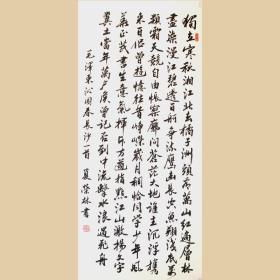 獨立寒秋湘江北去橘子洲頭看萬山紅遍層林
盡染漫江碧透百舸爭流鷹擊長空魚翔淺底萬
類霜天競自由悵寥廓問蒼茫大地誰主沉浮攜
來百侶曾遊憶往昔崢嶸歲月稠恰同學少年風
華正茂書生意氣揮斥方遒指點江山激揚文字
糞土當年萬戶侯曾記否到中流擊水浪遏飛舟
毛澤東沁園春長沙一首 夏榮林書